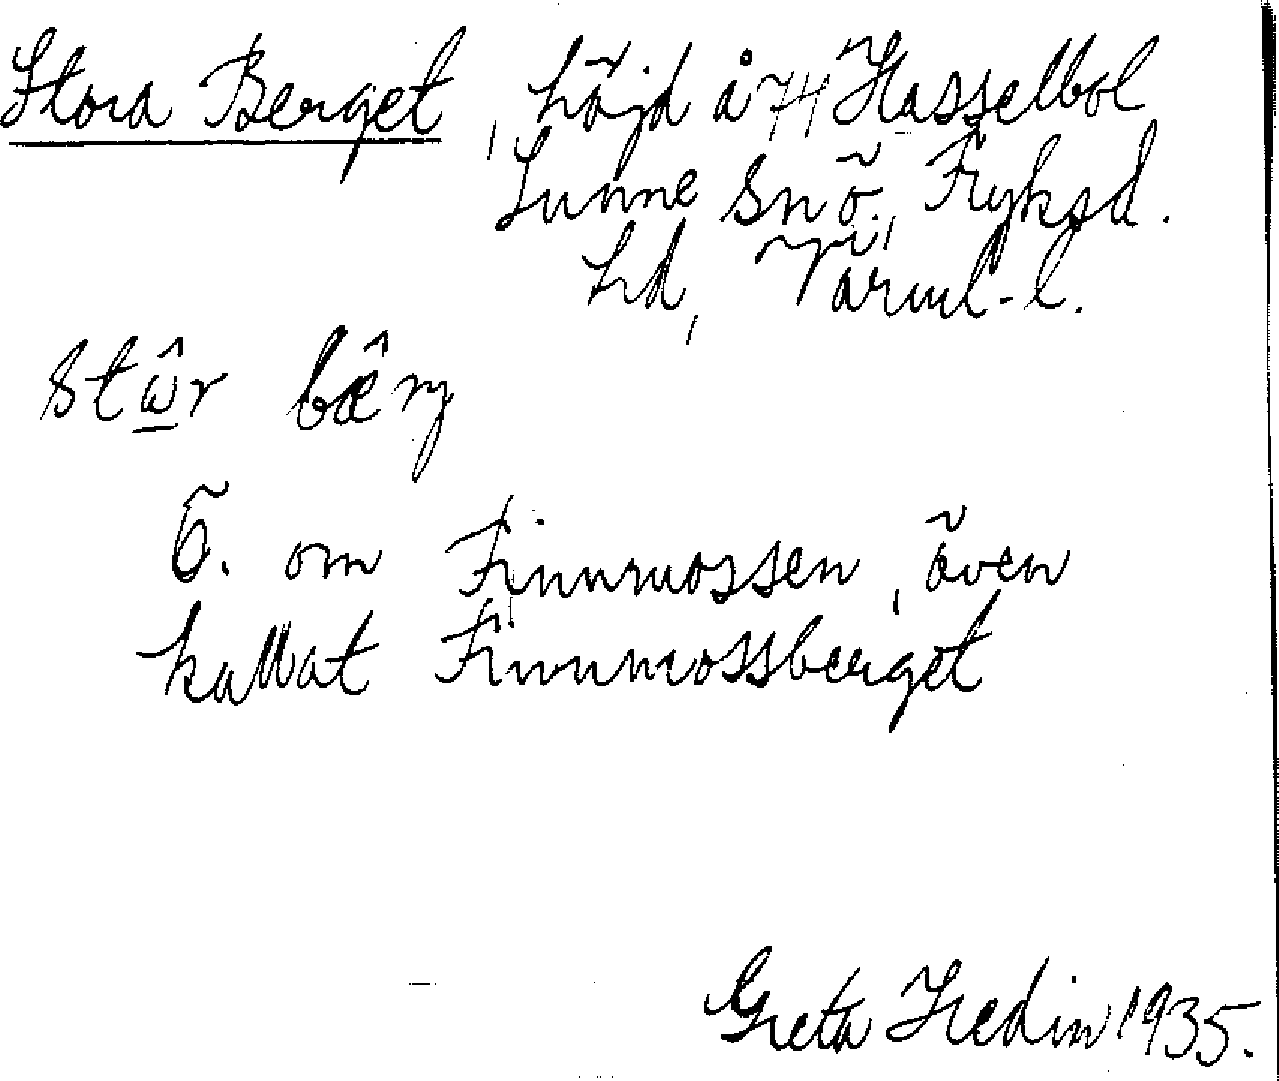 Stora Berget, höjd å 74 Hasselbol
Sunne snö., Fryksd.
hd, Värml-l.
stω̂r bæ̂rg
Ö. om Finnmossen, även
kallat Finnmossberget
Greta Hedin 1935.